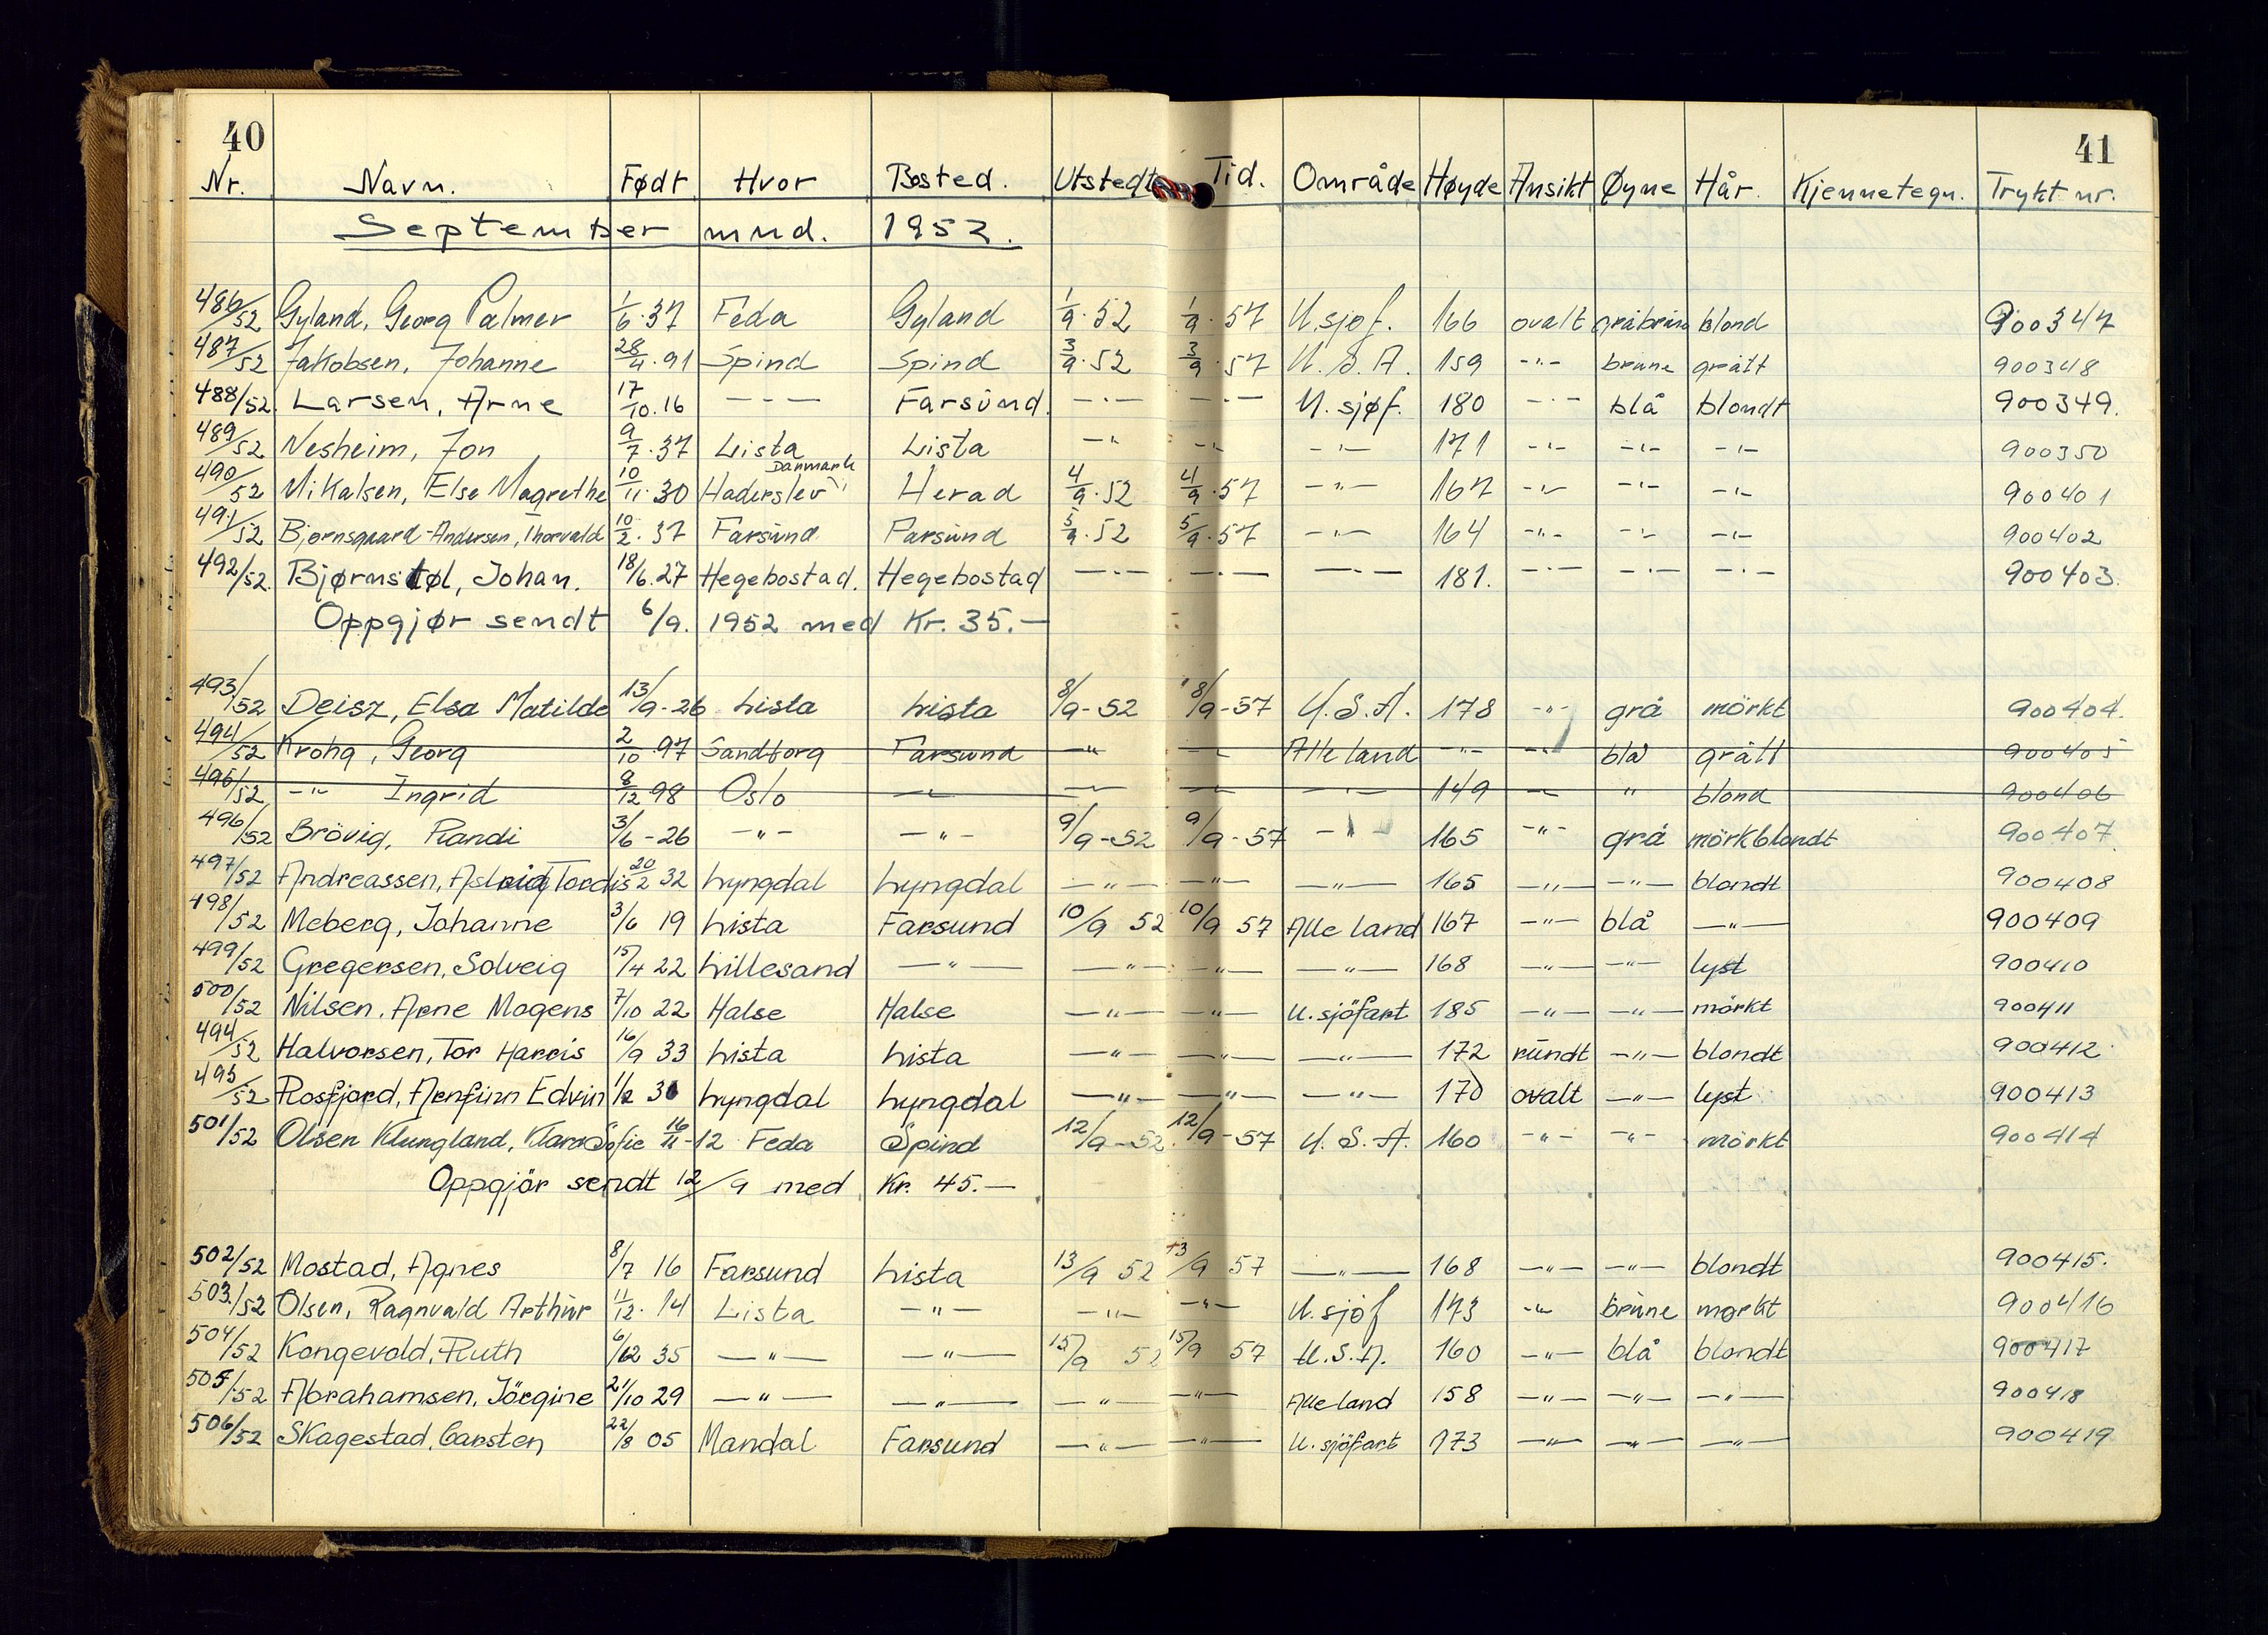 40 41
Nr. Navn. Født Hvor Bosted. Utstedt Tid. Område Høyde Ansikt Øyne Hår. Kjennetegn. Trykt nr.
September mnd. 1952.
486/52 Gyland, Georg Palmer 1/6·37 Feda Gyland 1/9·52 1/9·57 U.sjøf. 166 ovalt gråbrún blond 900347
487/52 Jakobsen, Johanne 28/4·91 Spind Spind 3/9·52 3/9·57 U.S.A. 159 -"- brune grått 900348
488/52. Larsen, Arne 17/10.16 -"- Farsúnd. -"- -"- U.sjøf. 180 -"- blå blondt 900349.
489/52 Nesheim, Jon 9/7·37 Lista Lista -"- -"- -"- 171 -"- -"- -"- 900350
490/52 Mikalsen, Else Magrethe 10/11·30 Haderslev Danmark Herad 4/9·52 4/9·57 -"- 167 -"- -"- -"- 900401
491/52 Bjørnsgaard-Andersen, Thorvald 10/2·37 Farsúnd Farsúnd 5/9·52 5/9·57 -"- 164 -"- -"- -"- 900402
492/52. Bjørnstøl, Johan. 18/6.27 Hegebostad. Hegebostad -"- -"- -"- 181. -"- -"- -"- 900403.
Oppgjør sendt 6/9. 1952 med Kr. 35.-
493/52 Deisz, Elsa Matilde 13/9-26 Lista Lista 8/9-52 8/9-57 U.S.A. 178 -"- grå mörkt 900404.
494/52 Krohg, Georg 2/10·97 Sandborg Farsund -"- -"- Alle land -"- -"- blå grått 900405
495/52 -"- Ingrid 8/12 98 Oslo -"- -"- -"- -"- 149 -"- " blond 900406
496/52 Brövig, Randi 3/6-26 -"- -"- 9/9-52 9/9-57 -"- 165 -"- grå mörkblondt 900407
497/52 Andreassen, Astrid Tordis 20/2 32 Lyngdal Lyngdal -"- -"- -"- 165 -"- -"- blondt 900408
498/52 Meberg, Johanne 3/6 19 Lista Farsund 10/9 52 10/9 57 Alle land 167 -"- blå -"- 900409
499/52 Gregersen, Solveig 15/4 22 Lillesand -"- -"- -"- -"- 168 -"- -"- lyst 900410
500/52 Nilsen, Arne Mogens 7/10 22 Halse Halse -"- -"- U.sjöfart 185 -"- -"- mörkt 900411
494/52 Halvorsen, Tor Harris 16/9 33 Lista Lista -"- -"- -"- 172 rúndt -"- blondt 900412
495/52 Rosfjord, Arnfinn Edvin 1/2 30 Lyngdal Lyngdal -"- -"- -"- 170 ovalt -"- lyst 900413
501/52 Olsen Klungland, Klara Sofie 16/11-12 Feda Spind 12/9-52 12/9-57 U.S.A. 160 -"- -"- mörkt 900414
Oppgjör sendt 12/9 med Kr. 45.-
502/52 Mostad, Agnes 8/7 16 Farsund Lista 13/9 52 13/9 57 -"- 168 -"- -"- blondt 900415.
503/52 Olsen, Ragnvald Arthúr 11/12·14 Lista -"- -"- -"- U.sjöf 173 -"- brúne mørkt 900416
504/52 Kongevold, Ruth 6/12 35 -"- -"- 15/9 52 15/9 57 U.S.A. 160 -"- blå blondt 900417
505/52 Abrahamsen, Jörgine 21/10 29 -"- -"- -"- -"- Alle land 158 -"- -"- -"- 900418
506/52 Skagestad, Carsten 22/8 05 Mandal Farsund -"- -"- U.sjöfart 173 -"- -"- -"- 900419